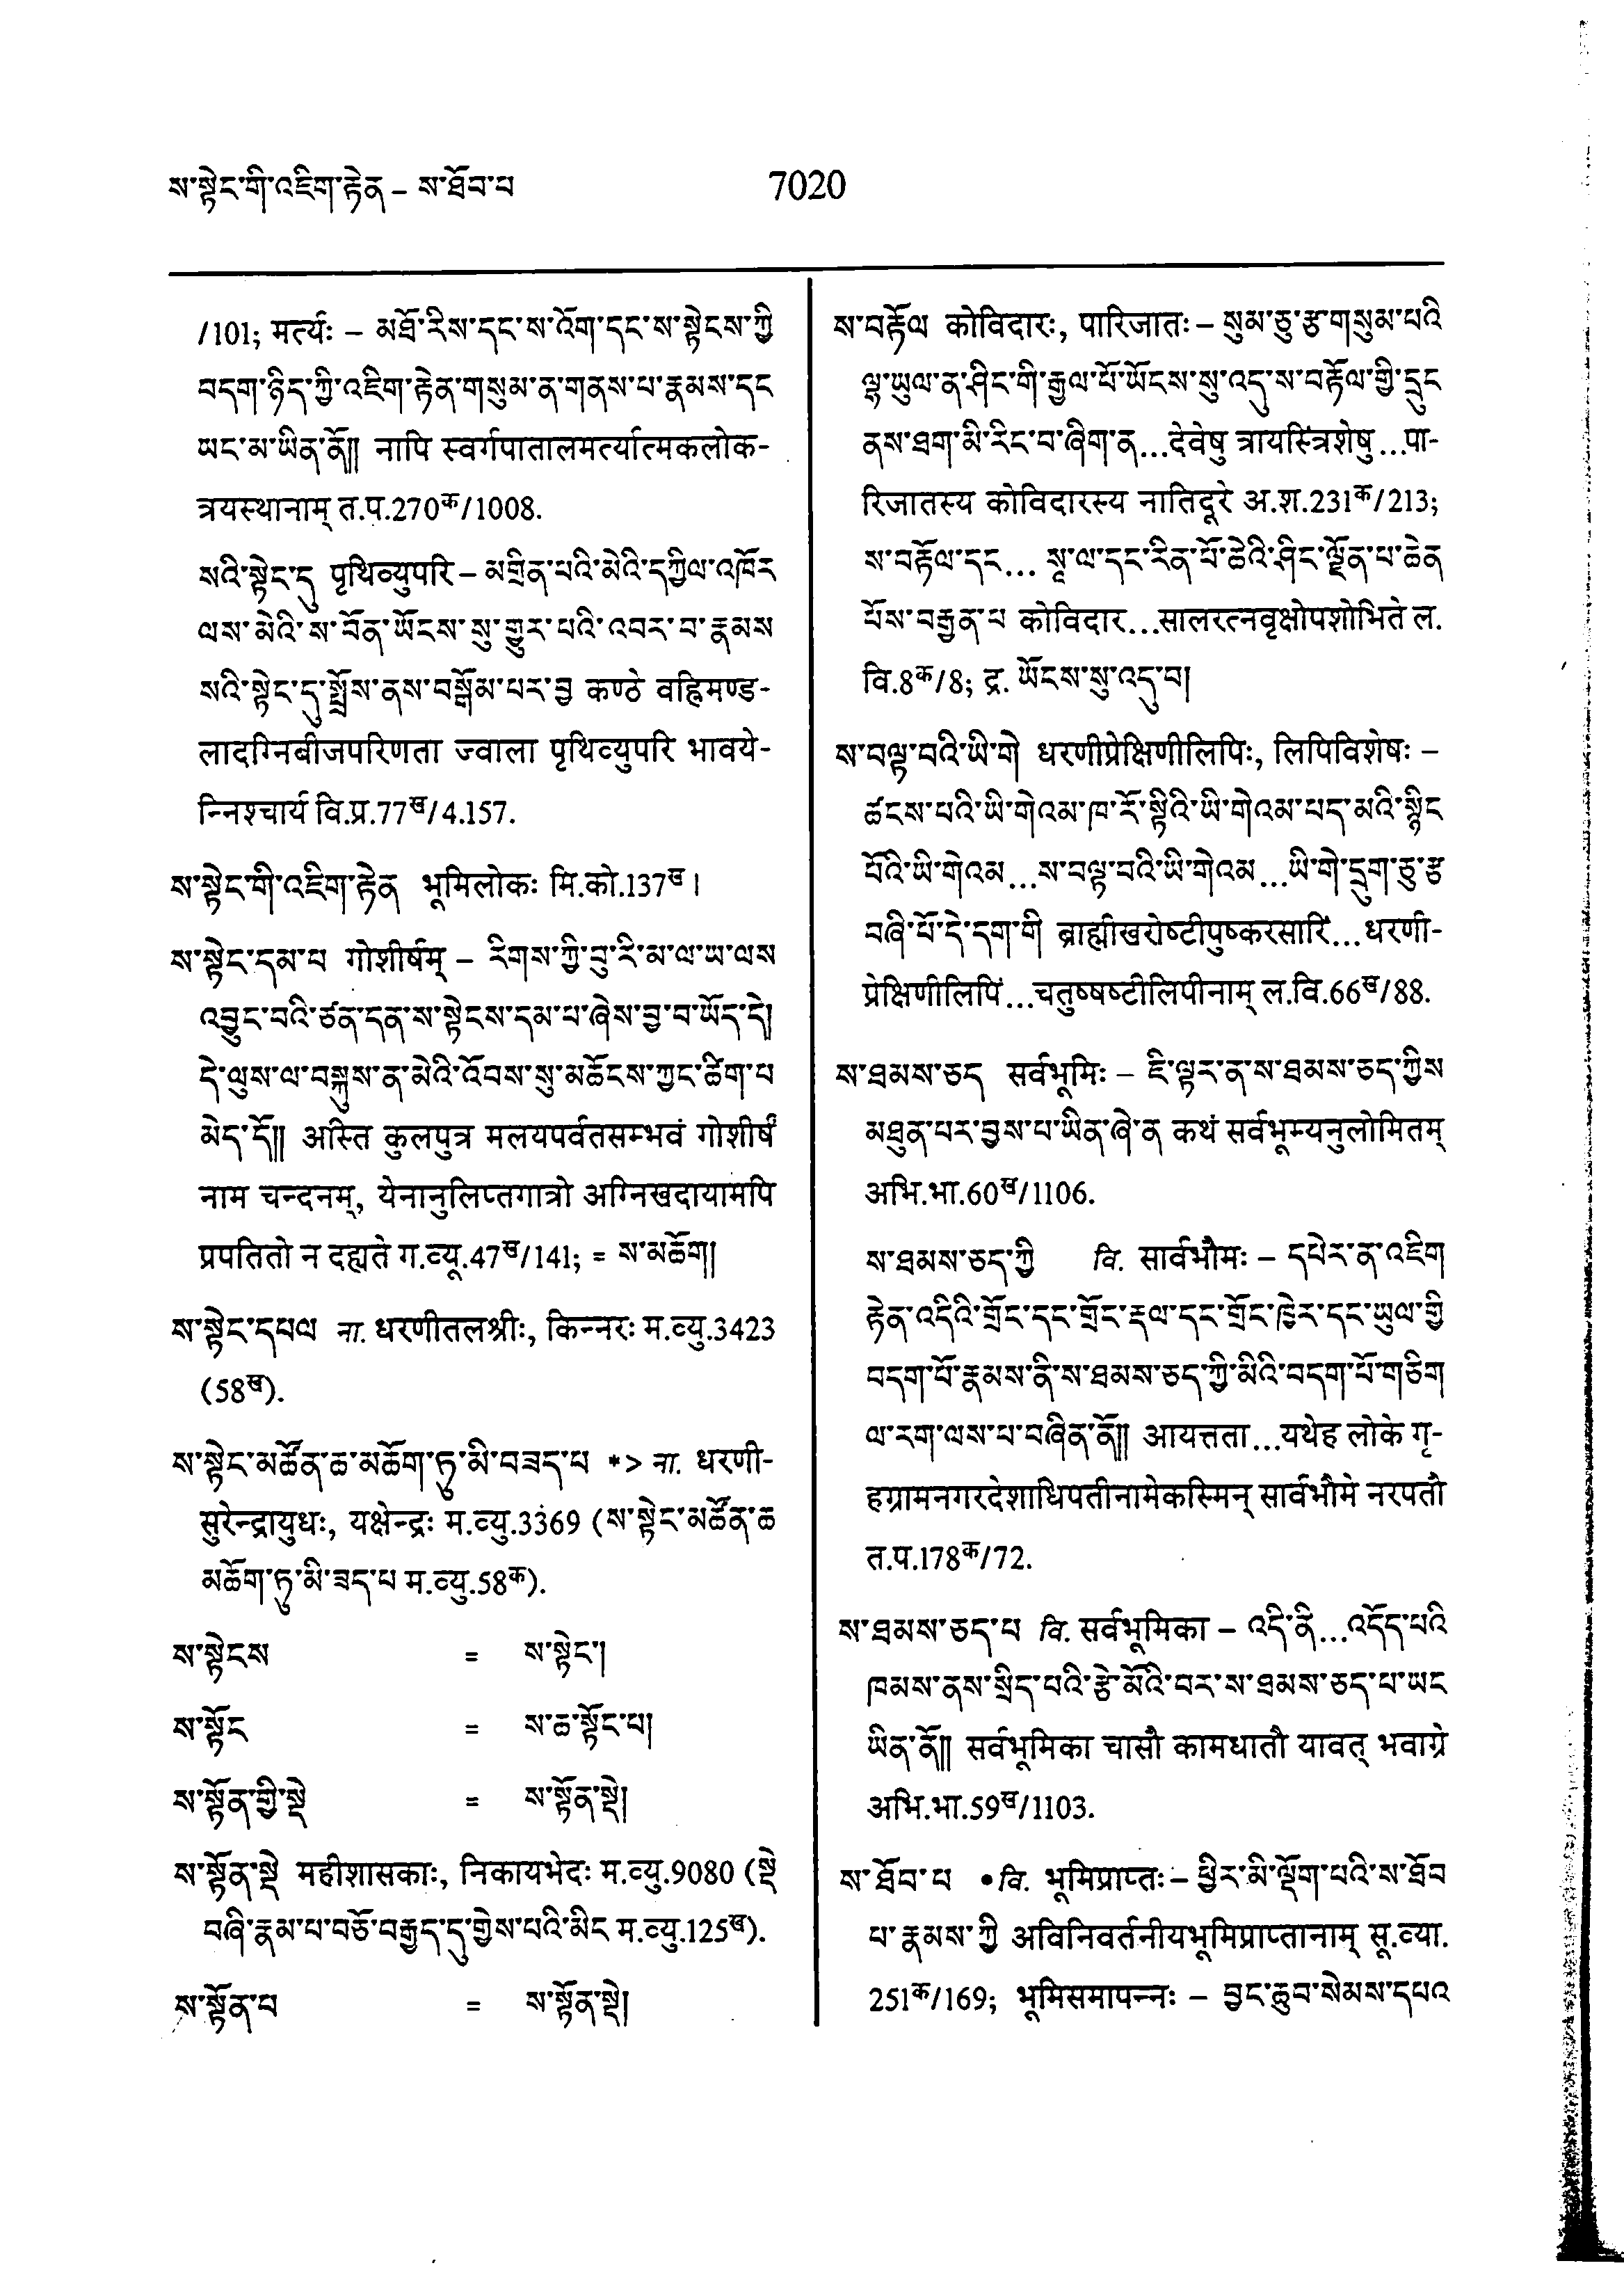 ས་སྟེང་གི་འཇིག་རྟེན – ས་ཐོབ་པ
7020
/101; मर्त्यः – མཐོ་རིས་དང་ས་འོག་དང་ས་སྟེངས་ཀྱི
བདག་ཉིད་ཀྱི་འཇིག་རྟེན་གསུམ་ན་གནས་པ་རྣམས་དང
ཡང་མ་ཡིན་ནོ།། नापि स्वर्गपातालमर्त्यात्मकलोक-
त्रयस्थानाम् त.प.270क/1008.
སའི་སྟེང་དུ पृथिव्युपरि – མགྲིན་པའི་མེའི་དཀྱིལ་འཁོར
ལས་མེའི་ས་བོན་ཡོངས་སུ་གྱུར་པའི་འབར་བ་རྣམས
སའི་སྟེང་དུ་སྤྲོས་ནས་བསྒོམ་པར་བྱ कण्ठे वह्निमण्ड-
लादग्निबीजपरिणता ज्वाला पृथिव्युपरि भावये-
न्निश्चार्य वि.प्र.77ख/4.157.
ས་སྟེང་གི་འཇིག་རྟེན भूमिलोकः मि.को.137ख।
ས་སྟེང་དམ་པ गोशीर्षम् – རིགས་ཀྱི་བུ་རི་མ་ལ་ཡ་ལས
འབྱུང་བའི་ཙན་དན་ས་སྟེངས་དམ་པ་ཞེས་བྱ་བ་ཡོད་དེ།
དེ་ལུས་ལ་བསྐུས་ན་མེའི་འོབས་སུ་མཆོངས་ཀྱང་ཚིག་པ
མེད་དོ།། अस्ति कुलपुत्र मलयपर्वतसम्भवं गोशीर्षं
नाम चन्दनम्, येनानुलिप्तगात्रो अग्निखदायामपि
प्रपतितो न दह्यते ग.व्यू.47ख/141; = ས་མཆོག།
ས་སྟེང་དཔལ ना. धरणीतलश्रीः, किन्नरः म.व्यु.3423
(58ख).
ས་སྟེང་མཚོན་ཆ་མཆོག་ཏུ་མི་བཟད་པ *> ना. धरणी-
सुरेन्द्रायुधः, यक्षेन्द्रः म.व्यु.3369 (ས་སྟེང་མཚོན་ཆ
མཆོག་ཏུ་མི་ཟད་པ म.व्यु.58क).
ས་སྟེངས = ས་སྟེང་།
ས་སྟོང = ས་ཆ་སྟོང་པ།
ས་སྟོན་གྱི་སྡེ = ས་སྟོན་སྡེ།
ས་སྟོན་སྡེ महीशासकाः, निकायभेदः म.व्यु.9080 (སྡེ
བཞི་རྣམ་པ་བཅོ་བརྒྱད་དུ་གྱེས་པའི་མིང म.व्यु.125ख).
ས་སྟོན་པ = ས་སྟོན་སྡེ།
ས་བརྟོལ कोविदारः, पारिजातः – སུམ་ཅུ་རྩ་གསུམ་པའི
ལྷ་ཡུལ་ན་ཤིང་གི་རྒྱལ་པོ་ཡོངས་སུ་འདུ་ས་བརྟོལ་གྱི་དྲུང
ནས་ཐག་མི་རིང་བ་ཞིག་ན...देवेषु त्रायस्त्रिंशेषु...पा-
रिजातस्य कोविदारस्य नातिदूरे अ.श.231क/213;
ས་བརྟོལ་དང... སཱ་ལ་དང་རིན་པོ་ཆེའི་ཤིང་ལྗོན་པ་ཆེན
པོས་བརྒྱན་པ कोविदार...सालरत्नवृक्षोपशोभिते ल.
वि.8क/8; द्र. ཡོངས་སུ་འདུ་བ།
ས་བལྟ་བའི་ཡི་གེ धरणीप्रेक्षिणीलिपिः, लिपिविशेषः –
ཚངས་པའི་ཡི་གེའམ་ཁ་རོ་སྟིའི་ཡི་གེའམ་པད་མའི་སྙིང
པོའི་ཡི་གེའམ...ས་བལྟ་བའི་ཡི་གེའམ...ཡི་གེ་དྲུག་ཅུ་རྩ
བཞི་པོ་དེ་དག་གི ब्राह्मीखरोष्टीपुष्करसारिं...धरणी-
प्रेक्षिणीलिपिं...चतुष्षष्टीलिपीनाम् ल.वि.66ख/88.
ས་ཐམས་ཅད सर्वभूमिः – ཇི་ལྟར་ན་ས་ཐམས་ཅད་ཀྱིས
མཐུན་པར་བྱས་པ་ཡིན་ཞེ་ན कथं सर्वभूम्यनुलोमितम्
अभि.भा.60ख/1106.
ས་ཐམས་ཅད་ཀྱི वि. सार्वभौमः – དཔེར་ན་འཇིག
རྟེན་འདིའི་གྲོང་དང་གྲོང་རྡལ་དང་གྲོང་ཁྱེར་དང་ཡུལ་གྱི
བདག་པོ་རྣམས་ནི་ས་ཐམས་ཅད་ཀྱི་མིའི་བདག་པོ་གཅིག
ལ་རག་ལས་པ་བཞིན་ནོ།། आयत्तता...यथेह लोके गृ-
हग्रामनगरदेशाधिपतीनामेकस्मिन् सार्वभौमे नरपतौ
त.प.178क/72.
ས་ཐམས་ཅད་པ वि. सर्वभूमिका – འདི་ནི...འདོད་པའི
ཁམས་ནས་སྲིད་པའི་རྩེ་མོའི་བར་ས་ཐམས་ཅད་པ་ཡང
ཡིན་ནོ།། सर्वभूमिका चासौ कामधातौ यावत् भवाग्रे
अभि.भा.59ख/1103.
ས་ཐོབ་པ •वि. भूमिप्राप्तः – ཕྱིར་མི་ལྡོག་པའི་ས་ཐོབ
པ་རྣམས་ཀྱི अविनिवर्तनीयभूमिप्राप्तानाम् सू.व्या.
251क/169; भूमिसमापन्नः – བྱང་ཆུབ་སེམས་དཔའ